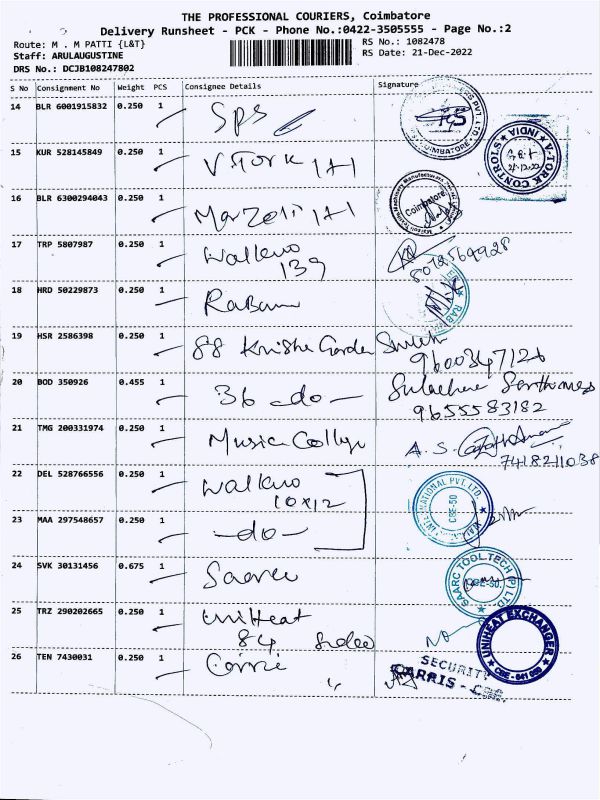 THE PROFESSIONAL COURIERS, Coimbatore
Delivery Runsheet - PCK - Phone No.:0422-3505555 - Page No.:2
Route: M . M PATTI {L&T}
RS No.: 1082478
Staff: ARULAUGUSTINE
RS Date: 21-Dec-2022
DRS No.: DCJB108247802
S No Consignment No Weight PCS Consignee Details Signature
14 BLR 6001915832 0.250 1 Sps
COIMBATORE
15 KUR 528145849 0.250 1 V.Tork 1A1
V-TORK CONTROLS INDIA
16 BLR 6300294043 0.250 1 Marzoli 1A1
Coimbatore
17 TRP 5807987 0.250 1 Walkwo
139
8072569928
18 HRD 50229873 0.250 1
19 HSR 2586398 0.250 1 88 Krishe Garden
9600347126
20 BOD 350926 0.455 1 36 -do-
9655583182
21 TMG 200331974 0.250 1 Music College A. S.
7418211038
22 DEL 528766556 0.250 1 Walkwo
10x12
INTERNATIONAL PVT. LTD.
CBE-50
23 MAA 297548657 0.250 1 -do-
24 SVK 30131456 0.675 1
SAARC TOOL TECH (P) LTD
CBE-50.
25 TRZ 290202665 0.250 1 UniHeat
84 Sidco
UNIHEAT EXCHANGER
CBE - 641 050
26 TEN 7430031 0.250 1
SECURITY